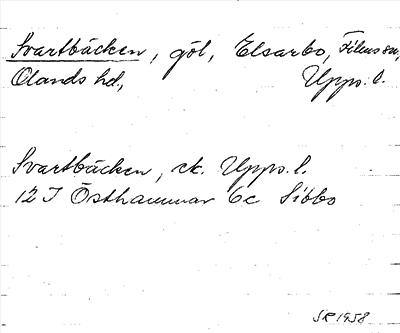 Svartbäcken, göl, Elsarbo, Films sn,
Olands hd, Upps. l.
Svartbäcken, ek. Upps. l.
12 I Östhammar 6c Sibbo
SR 1958